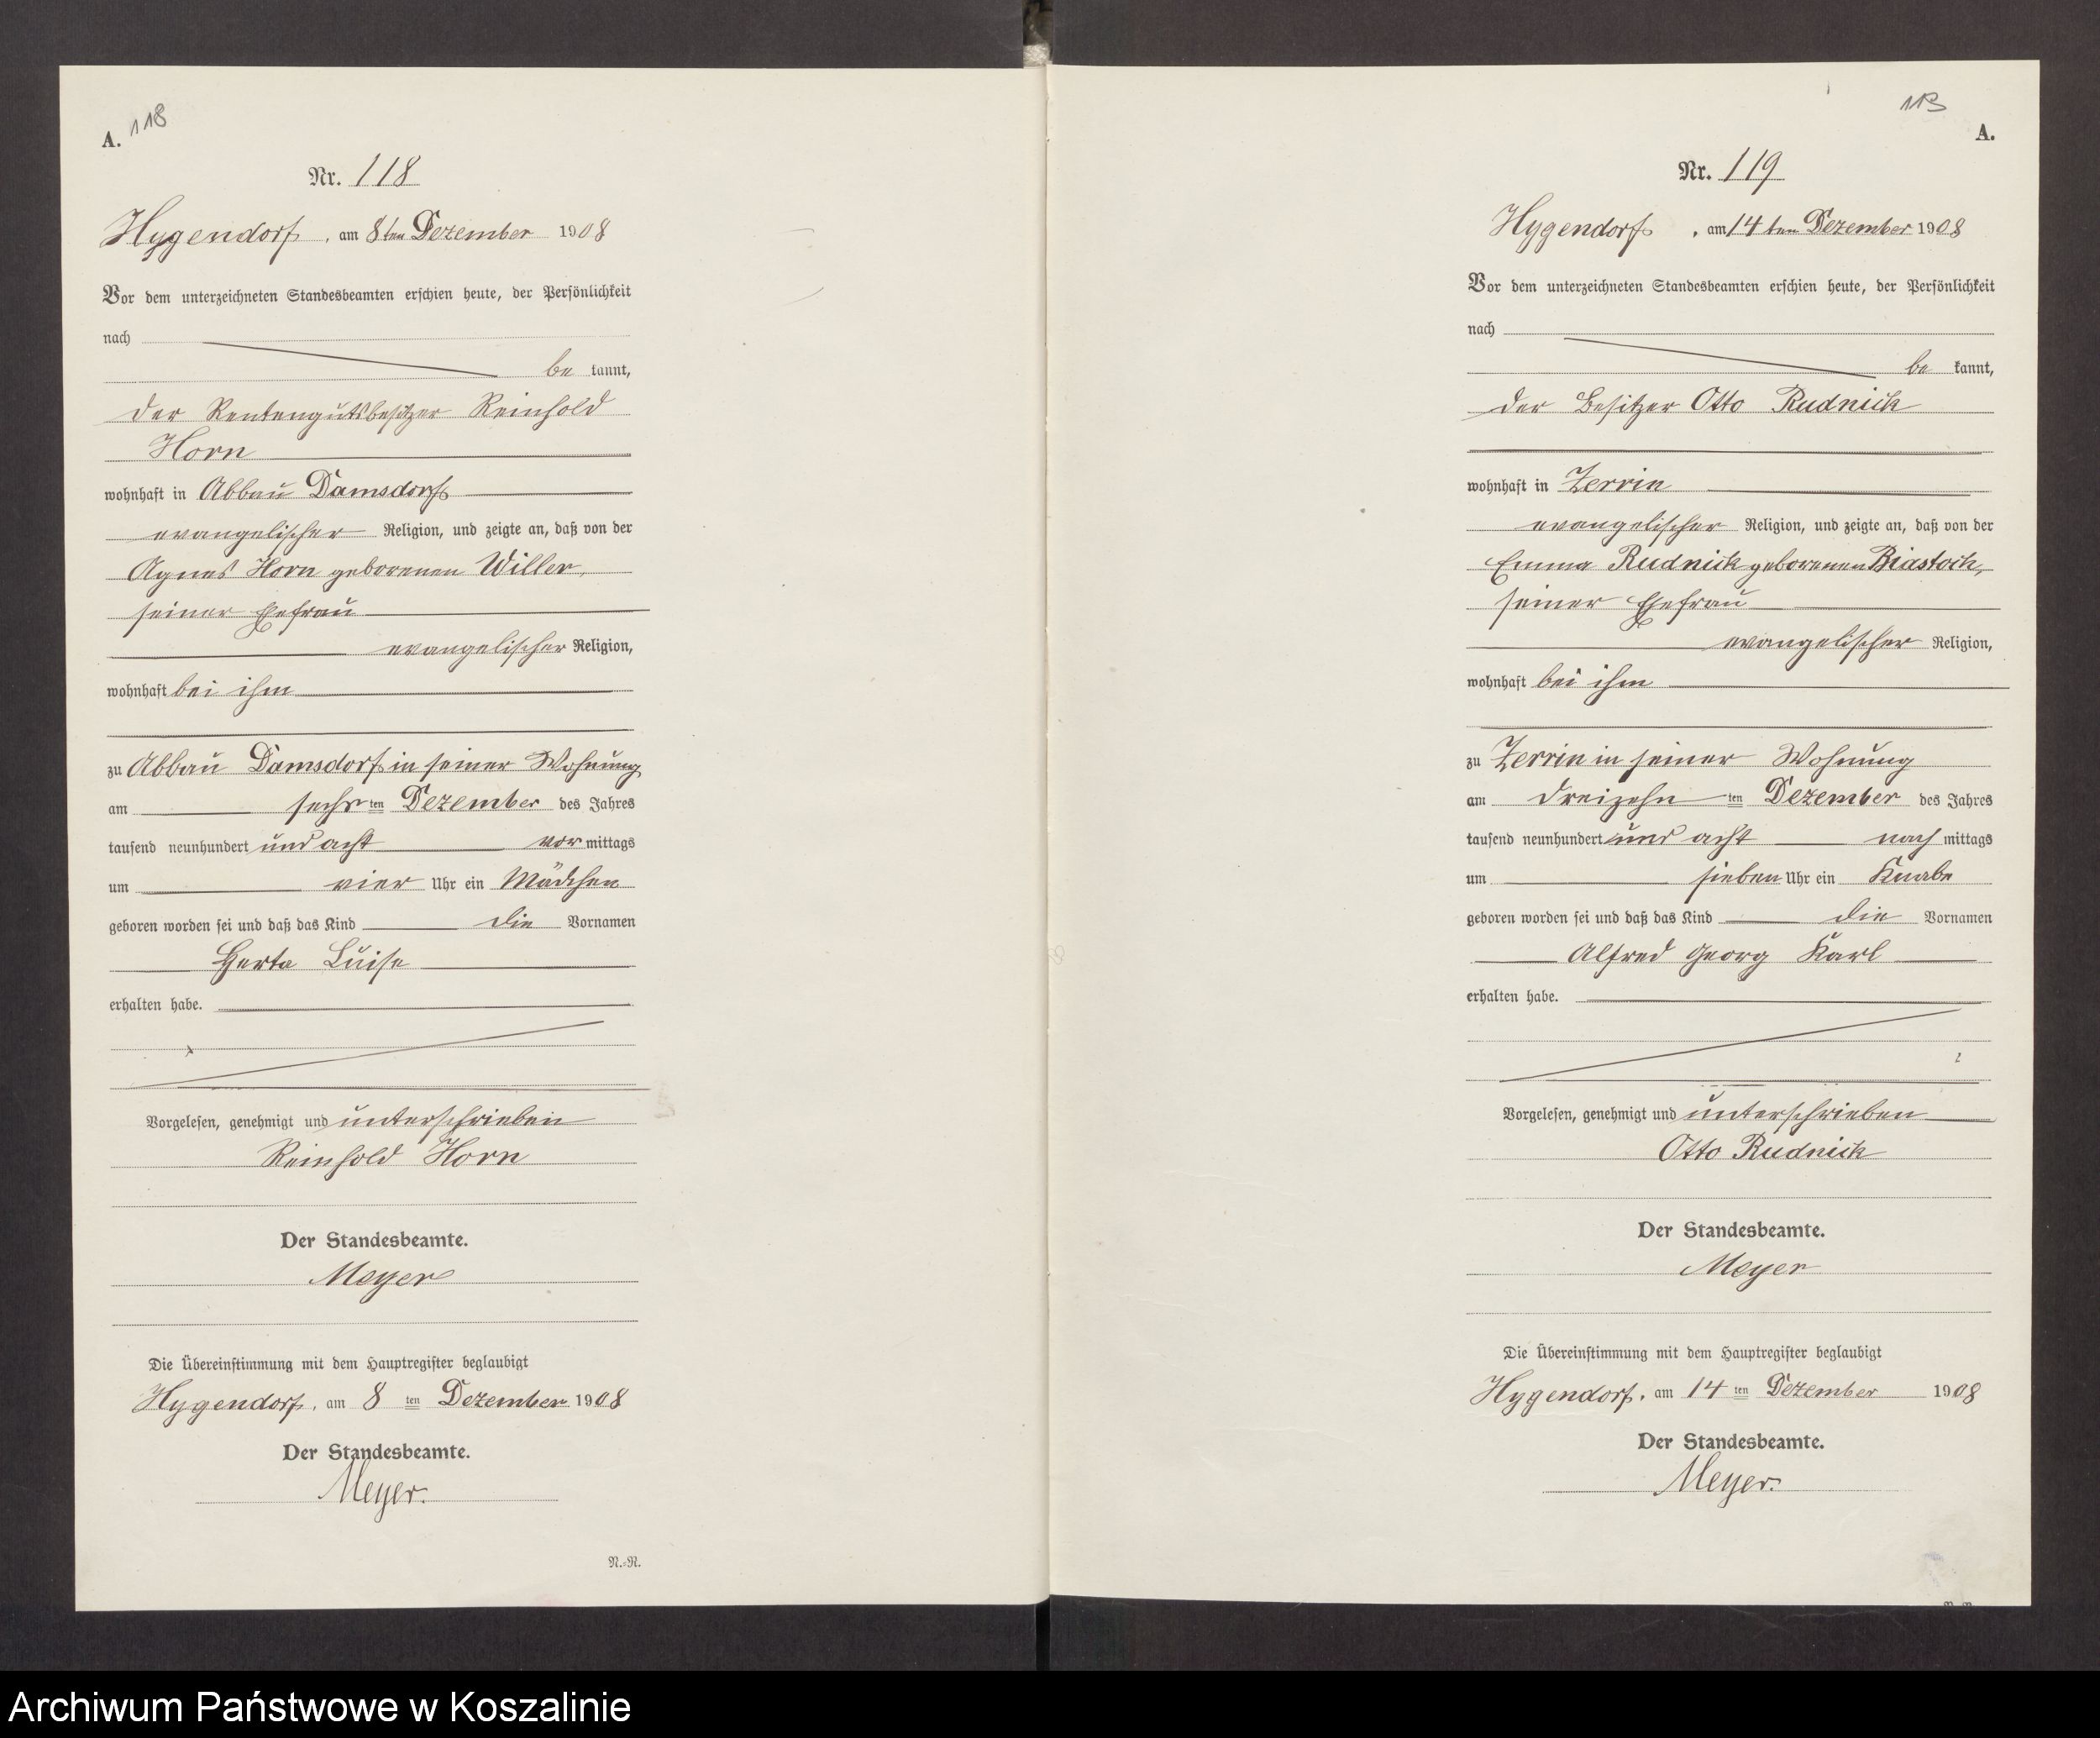 A. 118
Nr. 118
Hygendorf, am 8ten Dezember 1908
Vor dem unterzeichneten Standesbeamten erschien heute, der Persönlichkeit
nach
be kannt,
der Rentengutsbesitzer Reinhold
Horn
wohnhaft in Abbau Damsdorf
evangelischer Religion, und zeigte an, daß von der
Agnes Horn geborenen Willer,
seiner Ehefrau
evangelischer Religion,
wohnhaft bei ihm
zu Abbau Damsdorf in seiner Wohnung
am sechs ten Dezember des Jahres
tausend neunhundert und acht vor mittags
um vier Uhr ein Mädchen
geboren worden sei und daß das Kind die Vornamen
Herta Luise
erhalten habe.
Vorgelesen, genehmigt und unterschrieben
Reinhold Horn
Der Standesbeamte.
Meyer
Die Übereinstimmung mit dem Hauptregister beglaubigt
Hygendorf, am 8 ten Dezember 1908
Der Standesbeamte.
Meyer.
N.-R.
A.
Nr. 119
Hygendorf, am 14ten Dezember 1908
Vor dem unterzeichneten Standesbeamten erschien heute, der Persönlichkeit
nach
be kannt,
der Besitzer Otto Rudnick
wohnhaft in Zerrin
evangelischer Religion, und zeigte an, daß von der
Emma Rudnick geborenen Biastoch,
seiner Ehefrau
evangelischer Religion,
wohnhaft bei ihm
zu Zerrin in seiner Wohnung
am dreizehn ten Dezember des Jahres
tausend neunhundert und acht nach mittags
um sieben Uhr ein Knabe
geboren worden sei und daß das Kind die Vornamen
Alfred Georg Karl
erhalten habe.
Vorgelesen, genehmigt und unterschrieben
Otto Rudnick
Der Standesbeamte.
Meyer
Die Übereinstimmung mit dem Hauptregister beglaubigt
Hygendorf, am 14 ten Dezember 1908
Der Standesbeamte.
Meyer.
Archiwum Państwowe w Koszalinie